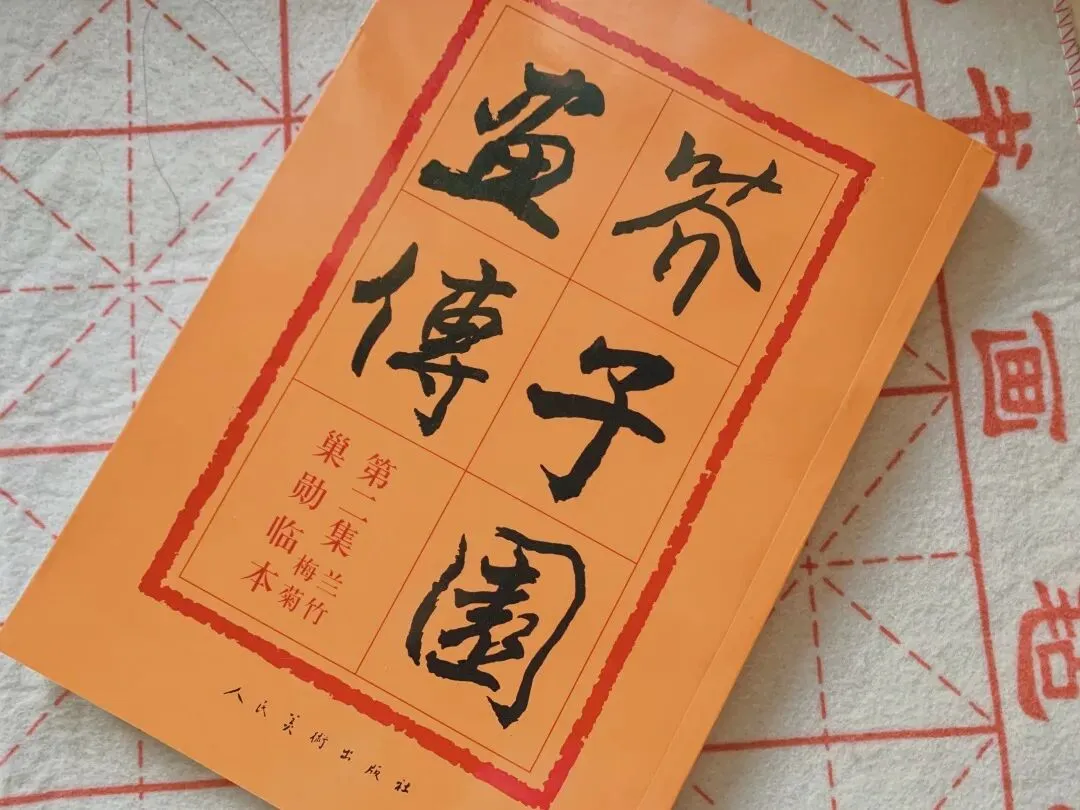 芥子園
畫傳
第二集
兰竹
梅菊
巢勋临本
人民美術出版社
书画